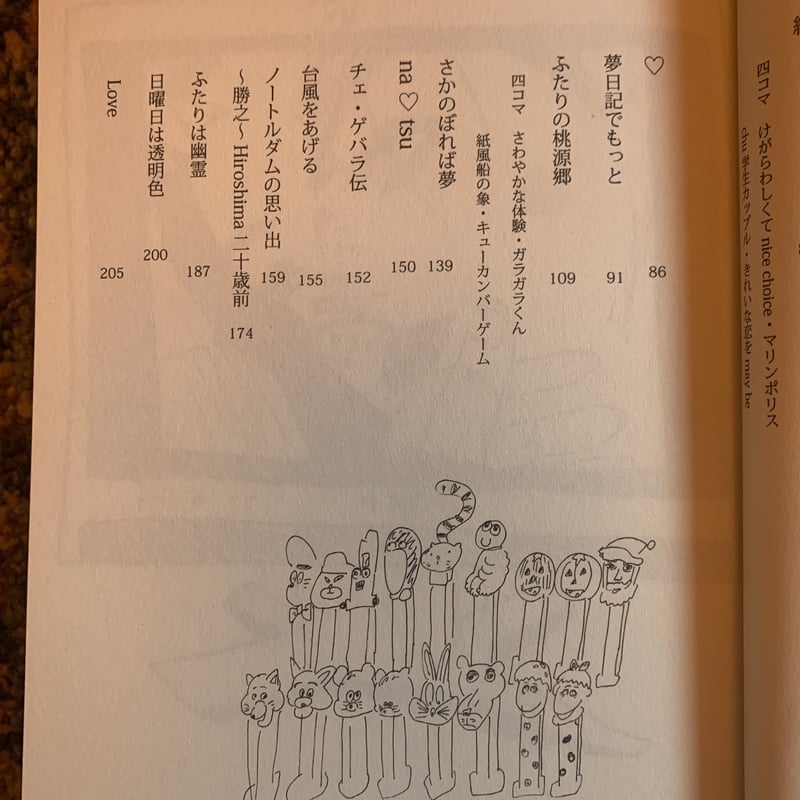 四コマ けがらわしくて nice choice・マリンポリス
chu 学生カップル・きれいな恋を may be
♡ 86
夢日記でもっと 91
ふたりの桃源郷 109
四コマ さわやかな体験・ガラガラくん
紙風船の象・キューカンバーゲーム
さかのぼれば夢 139
na ♡ tsu 150
チェ・ゲバラ伝 152
台風をあげる 155
ノートルダムの思い出 159
〜勝之〜 Hiroshima 二十歳前 174
ふたりは幽霊 187
日曜日は透明色 200
Love 205